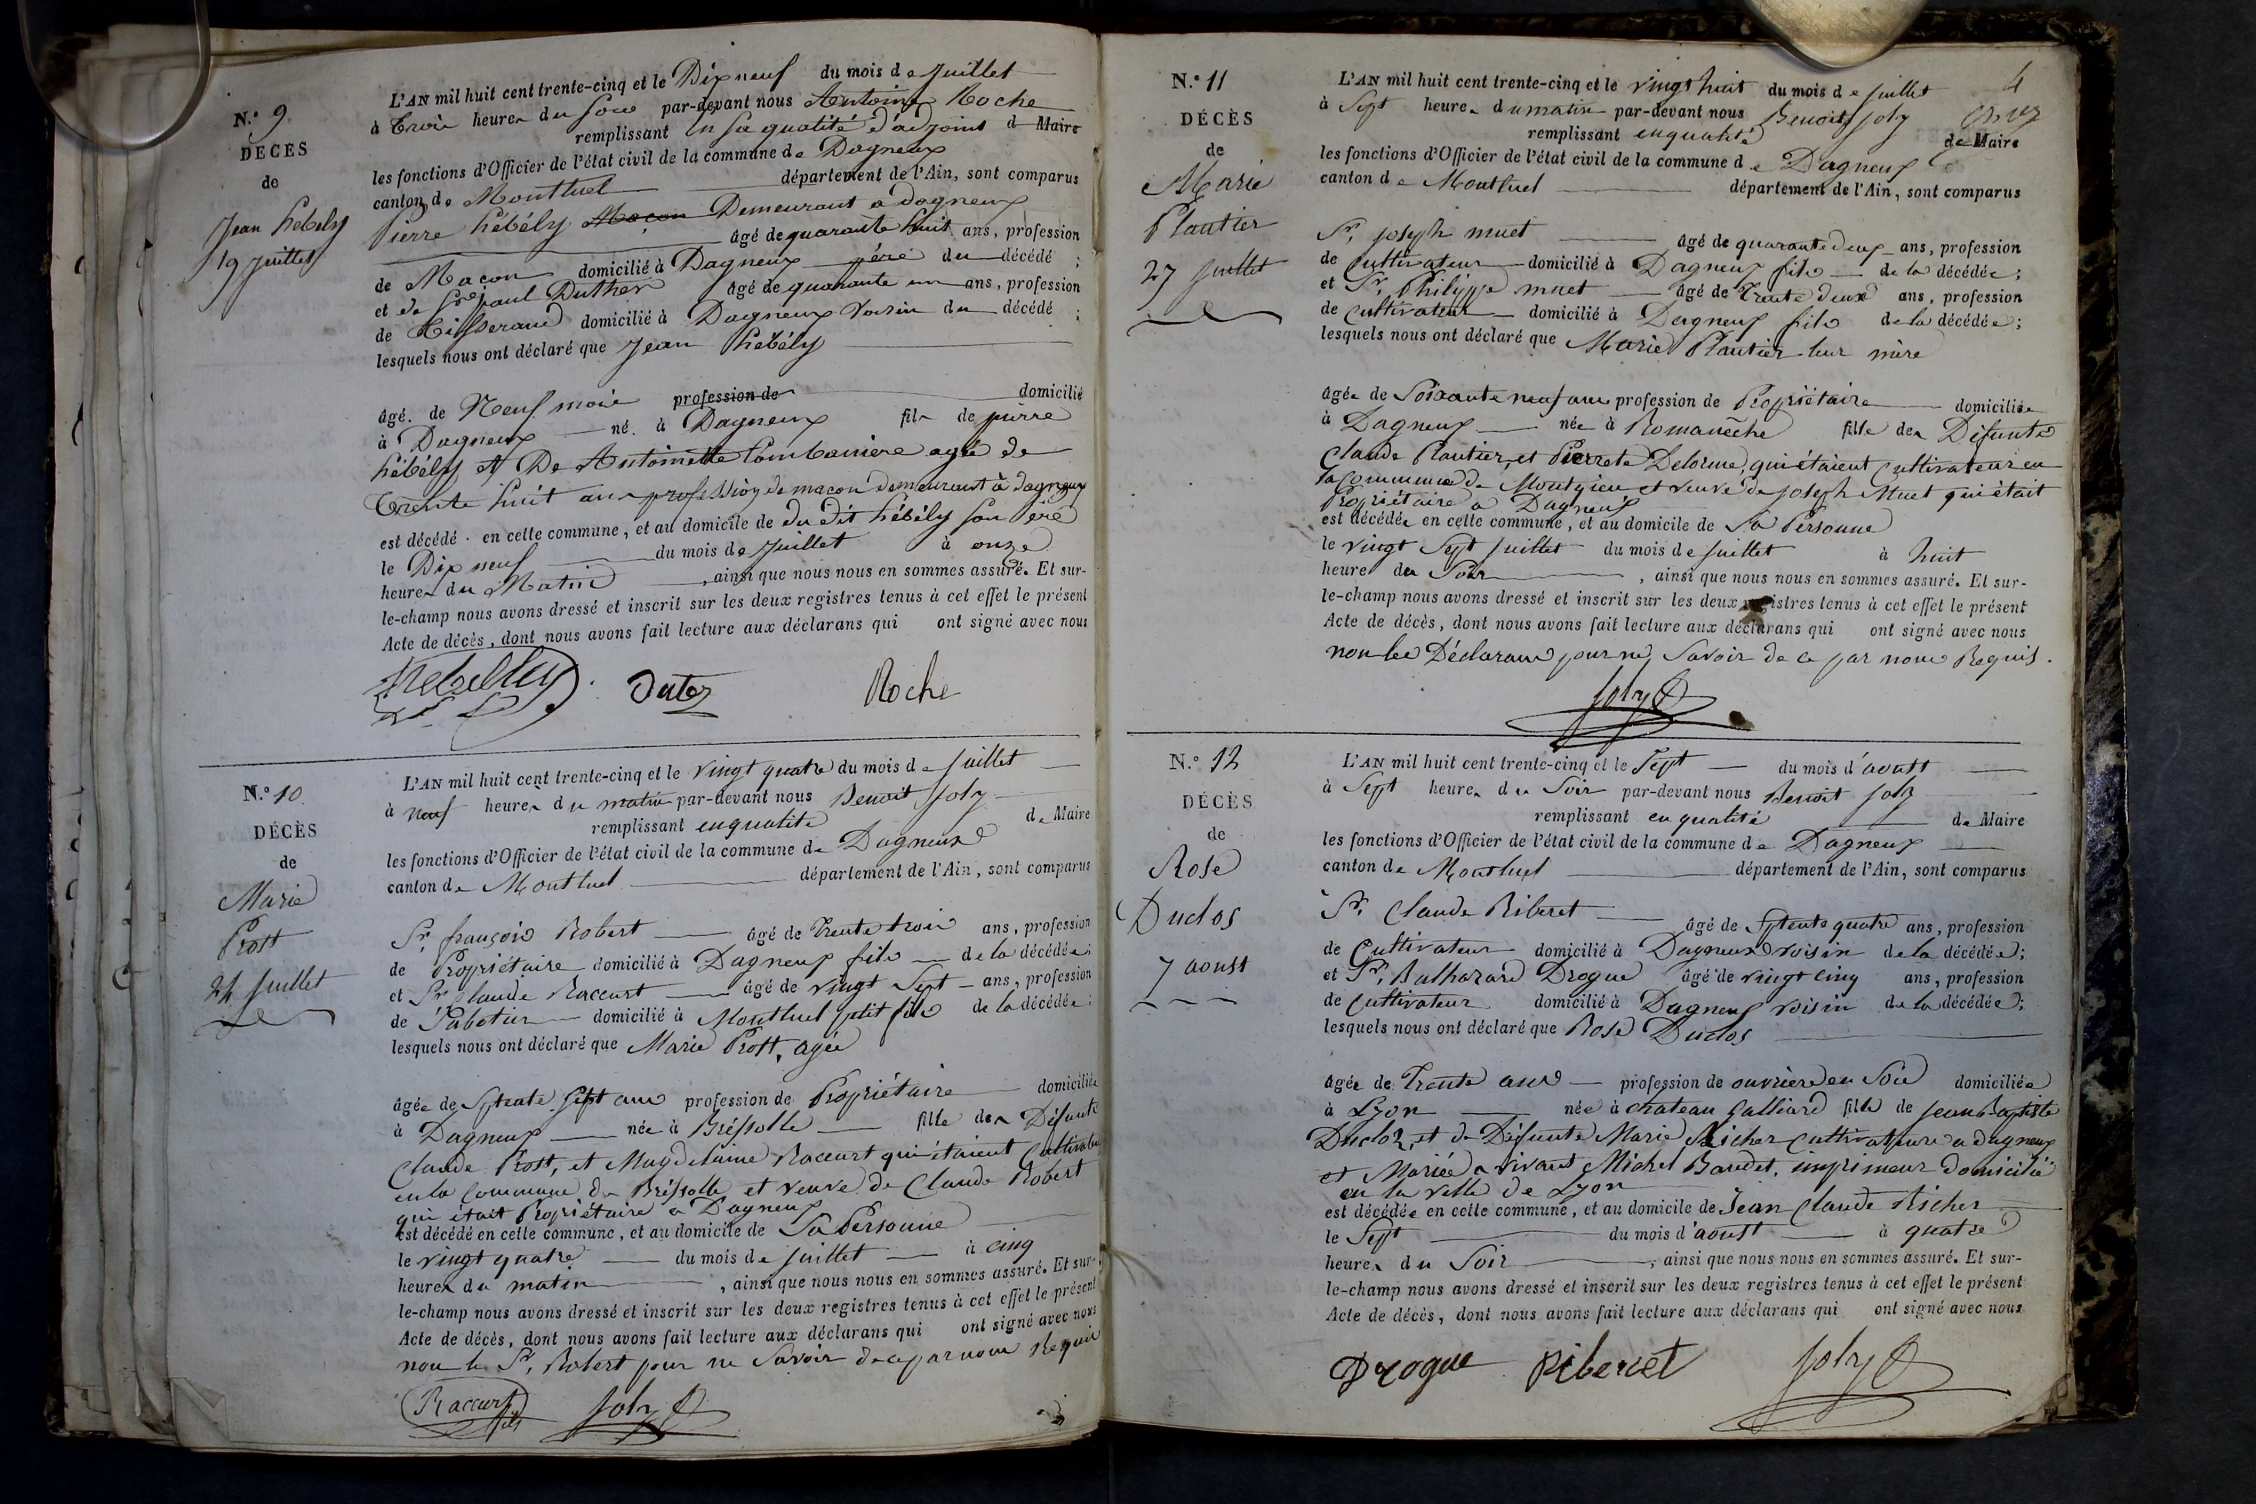 N.o 9
DÉCÈS
de
Jean hébély
19 juillet
L'AN mil huit cent trente-cinq et le Dix neuf du mois de Juillet
à trois heures du soir par-devant nous Antoine Roche
remplissant en sa qualité d'adjoint de Maire
les fonctions d'Officier de l'état civil de la commune de Dagneux
canton de Montluel département de l'Ain, sont comparus
Pierre hébély Maçon Demeurant a dagneux
âgé de quarante huit ans, profession
de Maçon domicilié à Dagneux père du décédé ;
et de paul Duther âgé de quarante un ans, profession
de Tisserand domicilié à Dagneux Voisin du décédé ;
lesquels nous ont déclaré que Jean hébély
âgé de Neuf mois profession de domicilié
à Dagneux né à Dagneux fils de pierre
hébély et De Antoinette agée de
trente huit ans profession de macon demeurant à dagneux
est décédé en cette commune, et au domicile de du dit hébély son père
le Dix neuf du mois de Juillet à onze
heures du Matin, ainsi que nous nous en sommes assuré. Et sur-
le-champ nous avons dressé et inscrit sur les deux registres tenus à cet effet le présent
Acte de décès, dont nous avons fait lecture aux déclarans qui ont signé avec nous
hebelly Duter Roche
N.o 10
DÉCÈS
de
Marie
Prost
24 Juillet
L'AN mil huit cent trente-cinq et le vingt quatre du mois de Juillet
à neuf heures du matin par-devant nous Benoit Joly
remplissant en qualité de Maire
les fonctions d'Officier de l'état civil de la commune de Dagneux
canton de Montluel département de l'Ain, sont comparus
Sr. françois Robert âgé de trente trois ans, profession
de Propriétaire domicilié à Dagneux fils de la décédée ;
et Sr Claude Raccurt âgé de vingt Sept ans, profession
de Sabotier domicilié à Montluel petit fils de la décédée ;
lesquels nous ont déclaré que Marie Prost, agée
âgée de Septente Sept ans profession de Propriétaire domiciliée
à Dagneux née à Bréssolle fille des Défunts
Claude Prost, et Magdelaine Raccurt qui étaient Cultivateurs
en la Commune de Bréssolle et veuve de Claude Robert
qui était Propriétaire a Dagneux
est décédé en cette commune, et au domicile de Sa Personne
le vingt quatre du mois de Juillet à cinq
heures du matin, ainsi que nous nous en sommes assuré. Et sur-
le-champ nous avons dressé et inscrit sur les deux registres tenus à cet effet le présent
Acte de décès, dont nous avons fait lecture aux déclarans qui ont signé avec nous
non le Sr. Robert pour ne Savoir de ce par nous Requis
Raccurt fils Joly
4
N.o 11
DÉCÈS
de
Marie
Plantier
27 Juillet
L'AN mil huit cent trente-cinq et le vingt huit du mois de Juillet
à Sept heures du matin par-devant nous Benoit Joly
remplissant en qualité de Maire
les fonctions d'Officier de l'état civil de la commune de Dagneux
canton de Montluel département de l'Ain, sont comparus
Sr. Joseph muet âgé de quarante deux ans, profession
de Cultivateur domicilié à Dagneux fils de la décédée ;
et Sr. Philippe muet âgé de trente deux ans, profession
de Cultivateur domicilié à Dagneux fils de la décédée ;
lesquels nous ont déclaré que Marie Plantier leur mère
âgée de Soixante neuf ans profession de Propriétaire domiciliée
à Dagneux née à Romanèche fille des Défunts
Claude Plantier, et Pierrete Delorme, qui étaient Cultivateur en
la Commune de Montgieu et veuve de Joseph Muet qui était
Propriétaire a Dagneux
est décédée en cette commune, et au domicile de Sa Personne
le vingt Sept Juillet du mois de Juillet à huit
heures du Soir, ainsi que nous nous en sommes assuré. Et sur-
le-champ nous avons dressé et inscrit sur les deux registres tenus à cet effet le présent
Acte de décès, dont nous avons fait lecture aux déclarans qui ont signé avec nous
non les Déclarans pour ne Savoir de ce par nous Requis.
Joly
N.o 12
DÉCÈS
de
Rose
Duclos
7 aoust
L'AN mil huit cent trente-cinq et le Sept du mois d'aoust
à Sept heures du Soir par-devant nous Benoit Joly
remplissant en qualité de Maire
les fonctions d'Officier de l'état civil de la commune de Dagneux
canton de Montluel département de l'Ain, sont comparus
Sr. Claude Riberet âgé de Septente quatre ans, profession
de Cultivateur domicilié à Dagneux voisin de la décédée ;
et Sr. Balthazard Drogue âgé de vingt cinq ans, profession
de Cultivateur domicilié à Dagneux voisin de la décédée ;
lesquels nous ont déclaré que Rose Duclos
âgée de Trente ans profession de ouvrière en Soie domiciliée
à Lyon née à chateau Galliard fille de Jean Baptiste
Duclos, et de Défunte Marie Richer Cultivateurs a dagneux
et Mariée a vivant Michel Baudet, imprimeur domicilié
en la ville de Lyon
est décédée en cette commune, et au domicile de Jean Claude Richer
le Sept du mois d'aoust à quatre
heures du Soir, ainsi que nous nous en sommes assuré. Et sur-
le-champ nous avons dressé et inscrit sur les deux registres tenus à cet effet le présent
Acte de décès, dont nous avons fait lecture aux déclarans qui ont signé avec nous
Drogue Ribercet Joly